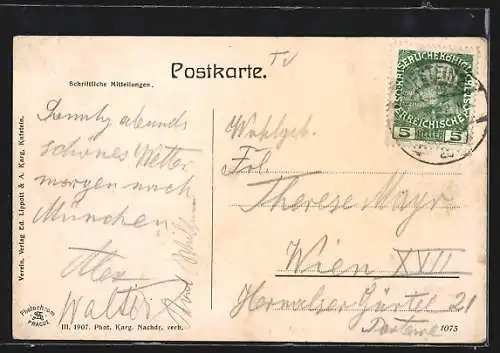 Postkarte.
Schriftliche Mitteilungen.
Sonntag abends
schönes Wetter
morgen nach
München
Alex
Walter
Wohlgeb.
Frl.
Therese Mayr
Wien XVII
Hernalser Gürtel 21
Parterre
5 HELLER 5
Verein. Verlag Ed. Lippott & A. Karg, Kufstein.
Photochrom
PRAGUE
III. 1907. Phot. Karg. Nachdr. verb.
1075